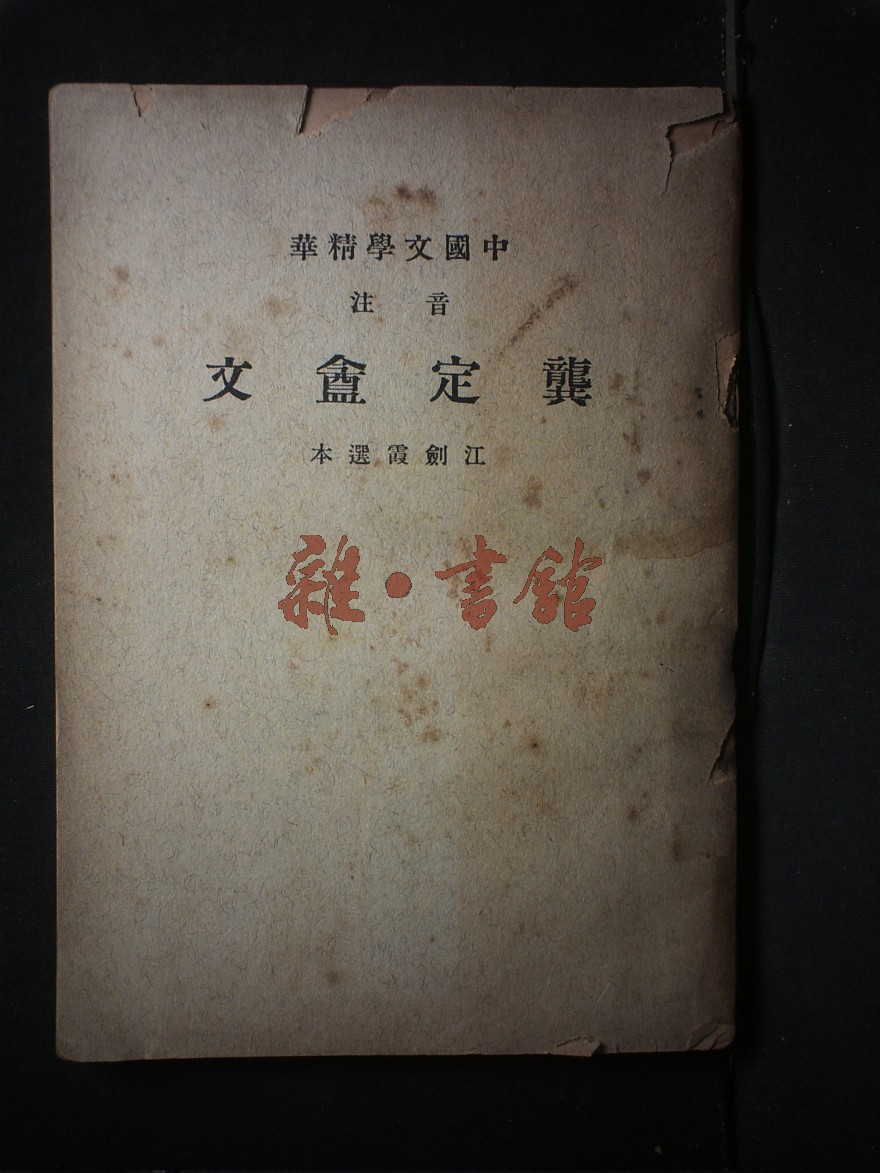 中國文學精華
音注
龔定盦文
江劍霞選本
雜·書館